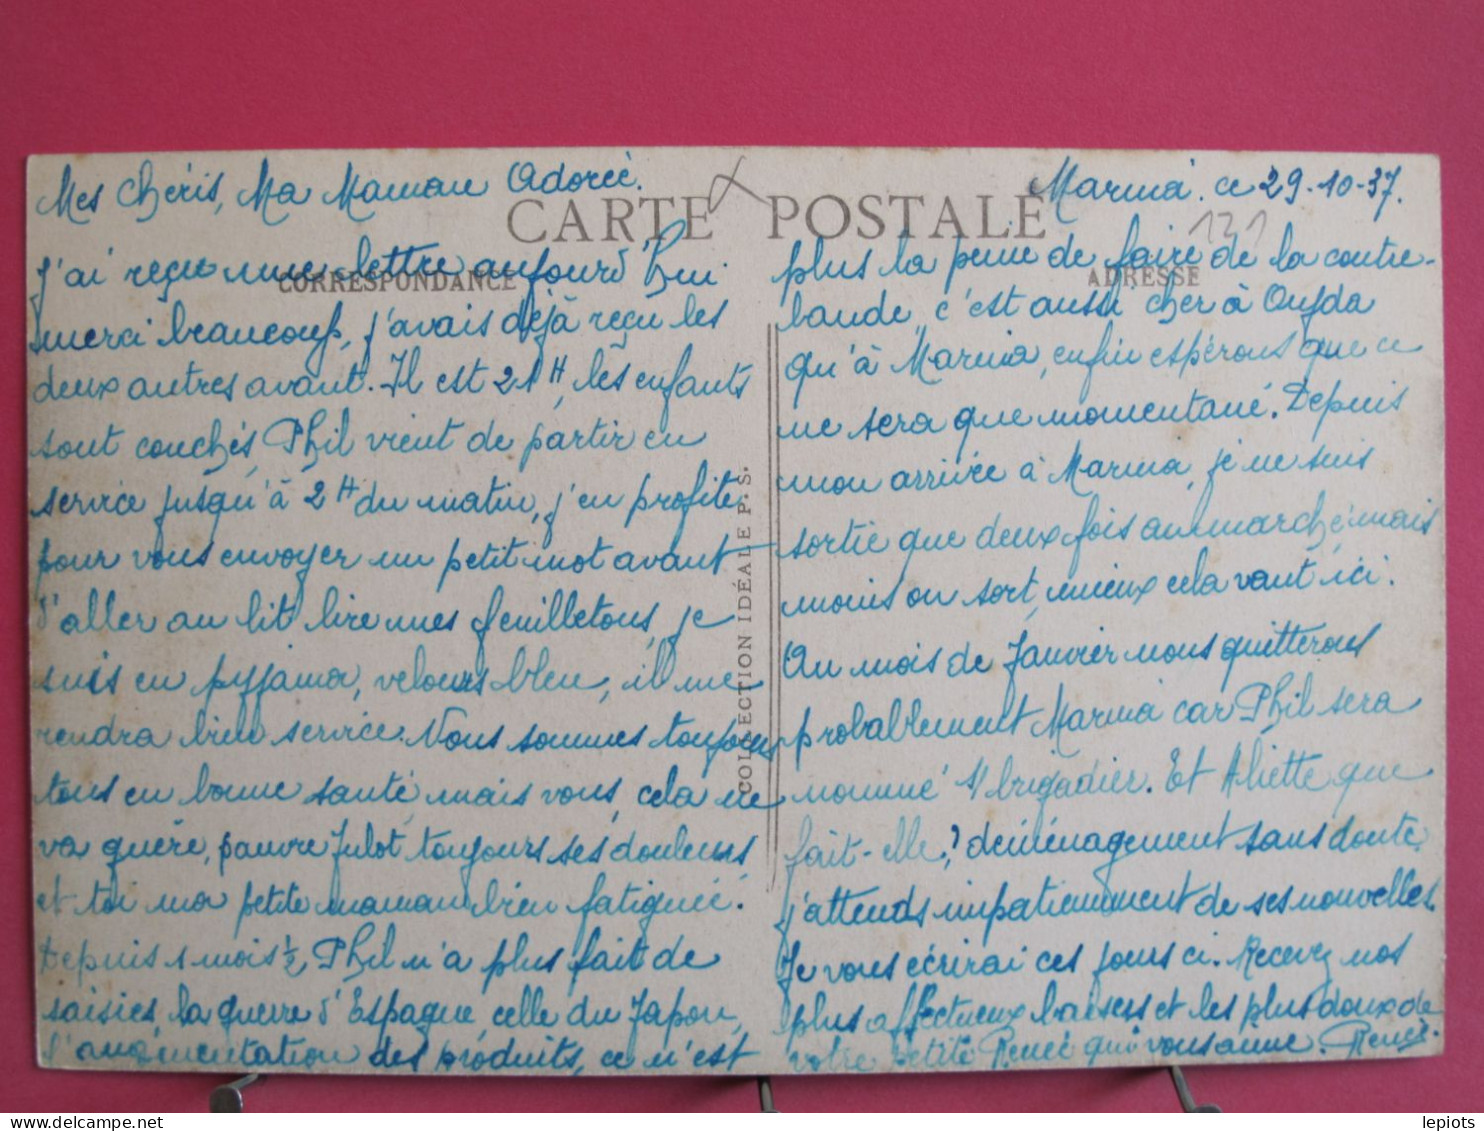 Mes Chéris, Ma Maman Adorée.
CARTE POSTALE
CORRESPONDANCE
J'ai reçu une lettre aujourd'hui
merci beaucoup, j'avais déjà reçu les
deux autres avant. Il est 21 H, les enfants
sont couchés, Phil vient de partir en
service jusqu'à 2 H du matin, j'en profite
pour vous envoyer un petit mot avant
d'aller au lit lire mes feuilletons, je
suis en pyjama, velours bleu, il me
rendra bien service. Nous sommes toujours
tous en bonne santé, mais vous, cela ne
va guère, pauvre Julot, toujours ses douleurs,
et toi ma petite maman bien fatiguée.
Depuis 1 mois ½, Phil n'a plus fait de
saisies, la guerre d'Espagne, celle du Japon,
l'augmentation des produits, ce n'est
COLLECTION IDÉALE P.S.
Marnia ce 29-10-37.
131
ADRESSE
plus la peine de faire de la contre-
bande, c'est aussi cher à Oujda
qu'à Marnia, enfin espérons que ce
ne sera que momentané. Depuis
mon arrivée à Marnia, je ne suis
sortie que deux fois au marché, mais
moins on sort, mieux cela vaut ici.
Au mois de Janvier nous quitterons
probablement Marnia car Phil sera
nommé S/brigadier. Et Aliette que
fait-elle? déménagement sans doute,
j'attends impatiemment de ses nouvelles.
Je vous écrirai ces jours ci. Recevez nos
plus affectueux baisers et les plus doux de
votre petite Renée qui vous aime. Renée.
lepiots